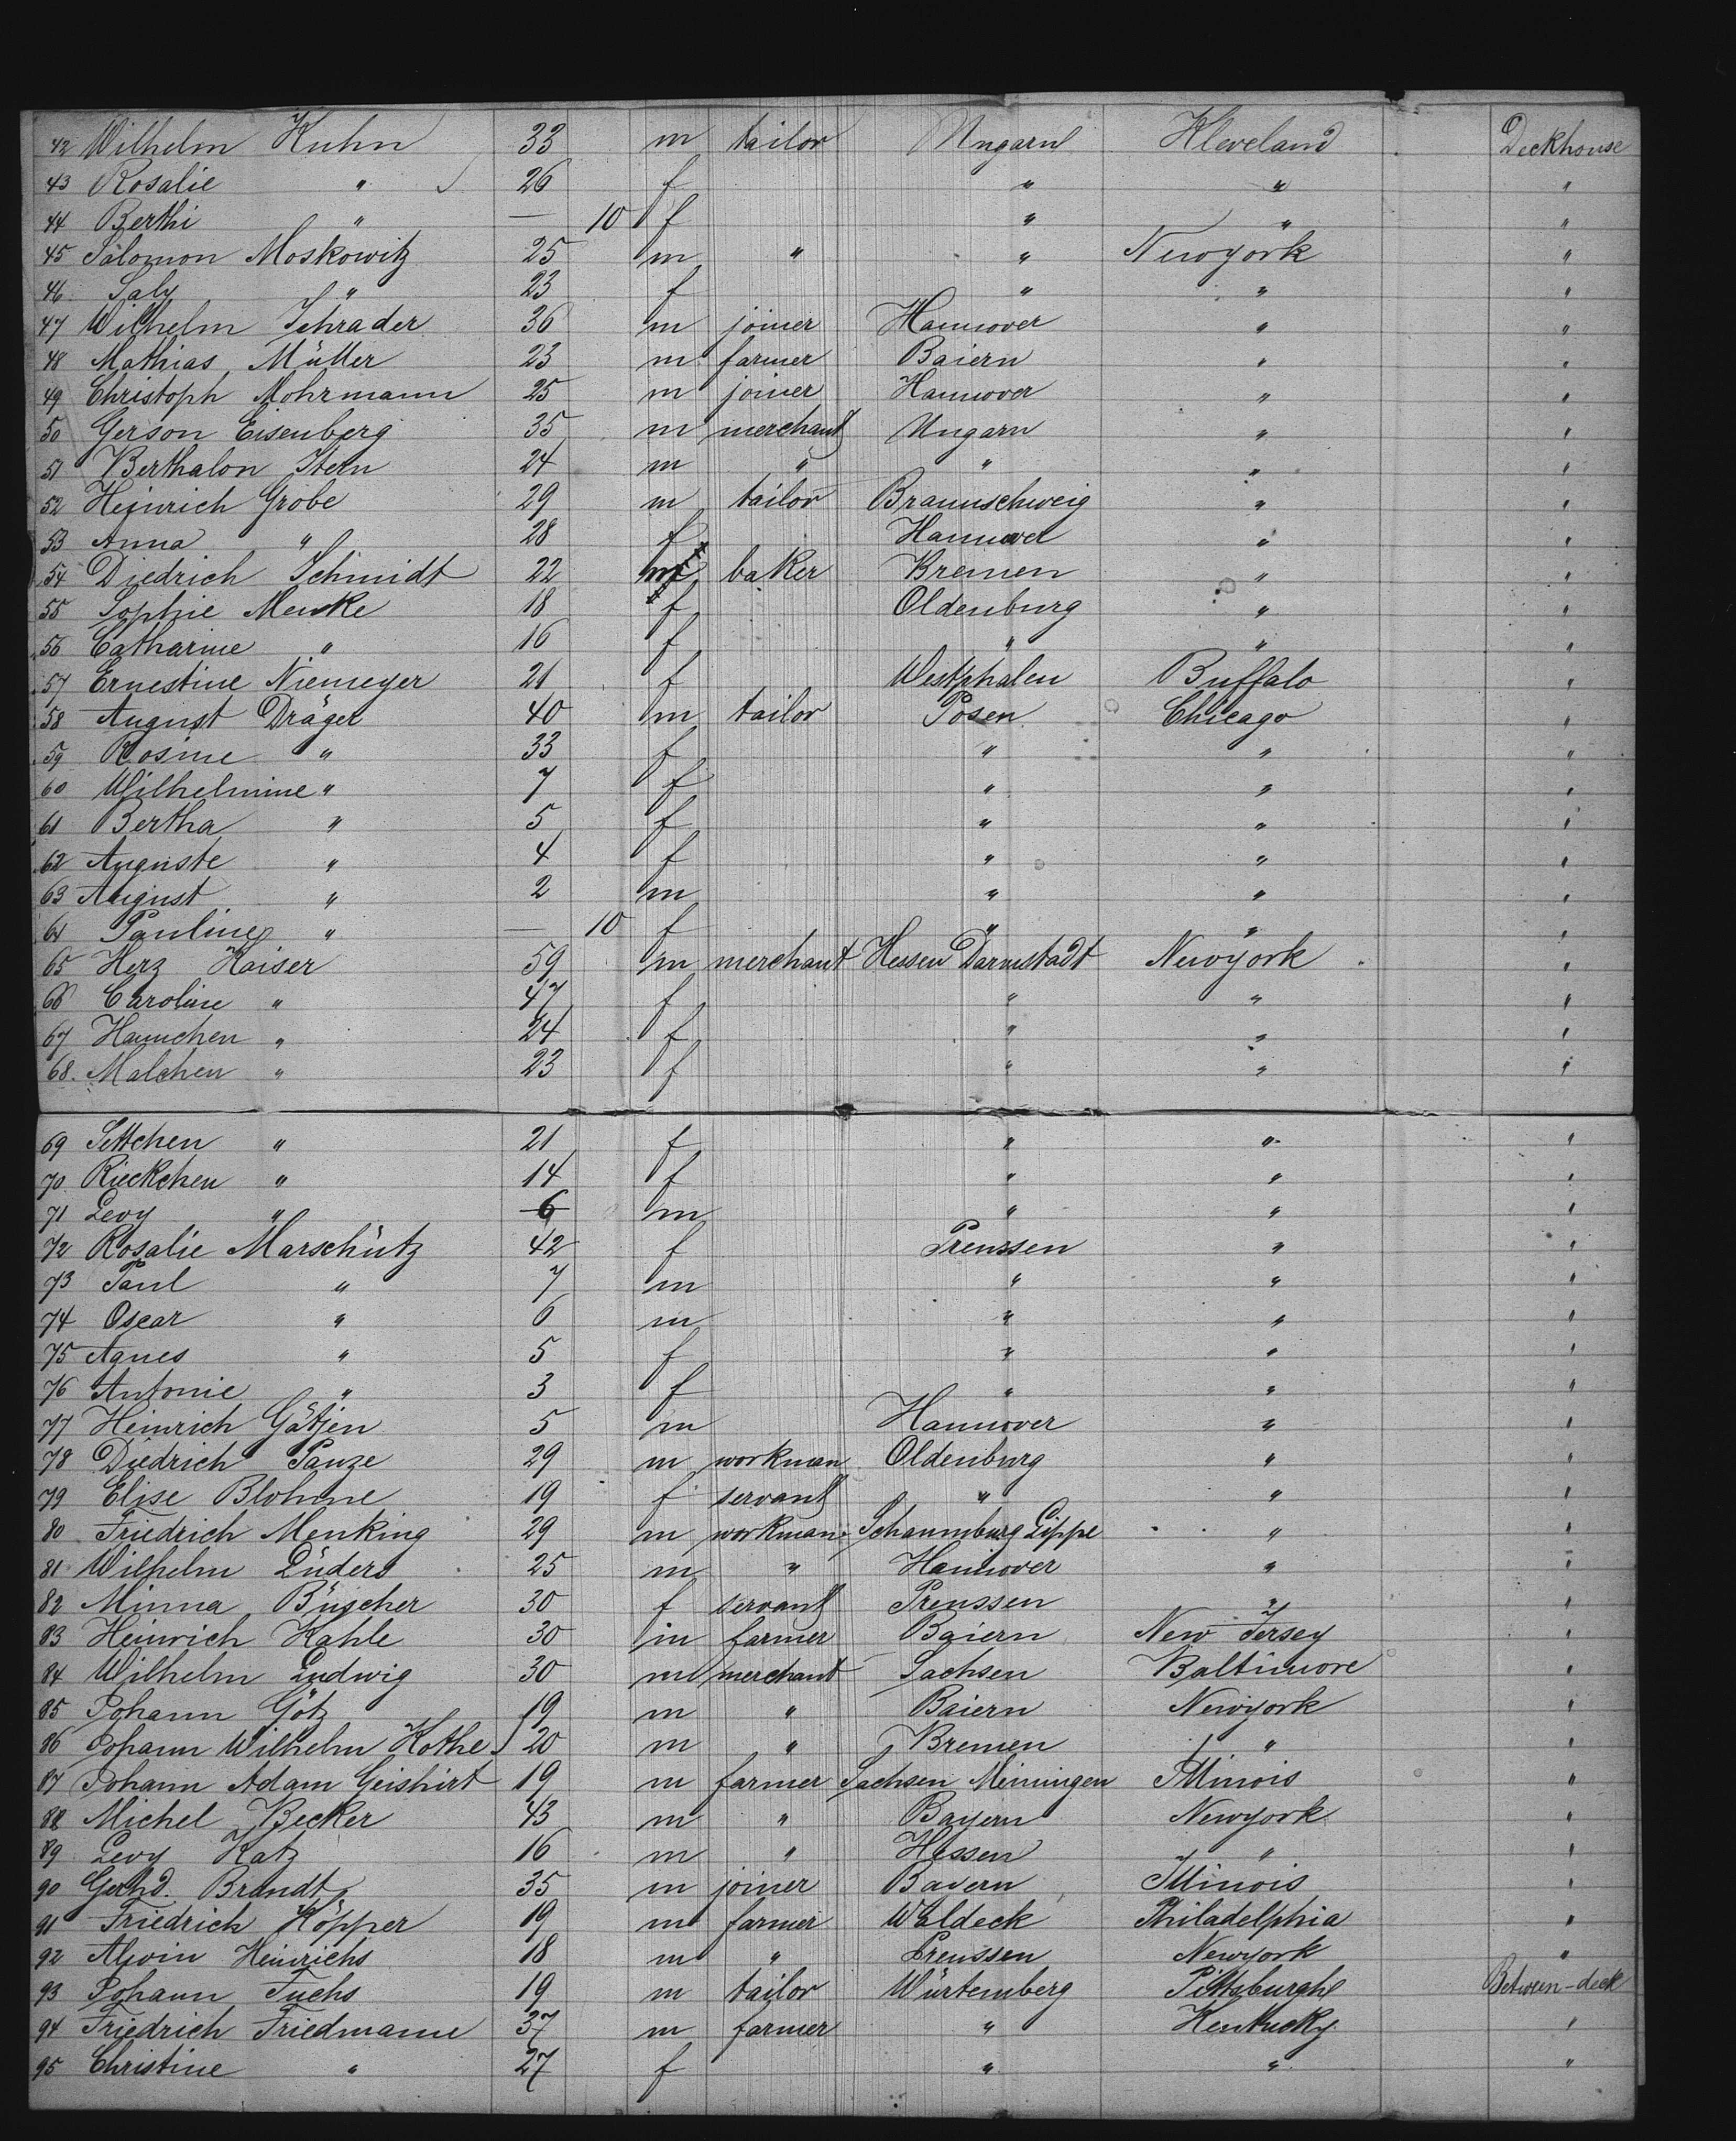 42 Wilhelm Kuhn 33 m tailor Ungarn Kleveland Deckhouse
43 Rosalie " 26 f " " "
44 Berthi " — 10 f " " "
45 Salomon Moskowitz 25 m " " Newyork "
46 Saly " 23 f " " "
47 Wilhelm Schrader 36 m joiner Hannover " "
48 Mathias Müller 23 m farmer Baiern " "
49 Christoph Mohrmann 25 m joiner Hannover " "
50 Gerson Eisenberg 35 m merchant Ungarn " "
51 Berthalon Stern 24 m " " " "
52 Heinrich Grobe 29 m tailor Braunschweig " "
53 Anna " 28 f Hannover " "
54 Diedrich Schmidt 22 m baker Bremen " "
55 Sophie Menke 18 f Oldenburg " "
56 Catharine " 16 f " " "
57 Ernestine Niemeyer 21 f Westphalen Buffalo "
58 August Dräger 40 m tailor Posen Chicago "
59 Rosine " 33 f " " "
60 Wilhelmine " 7 f " " "
61 Bertha " 5 f " " "
62 Auguste " 4 f " " "
63 August " 2 m " " "
64 Pauline " — 10 f " " "
65 Herz Kaiser 59 m merchant Hessen Darmstadt Newyork "
66 Caroline " 47 f " " "
67 Hannchen " 24 f " " "
68. Malchen " 23 f " " "
69 Settchen " 21 f " " "
70 Rieckchen " 14 f " " "
71 Levy " 6 m " " "
72 Rosalie Marschütz 42 f Preussen " "
73 Paul " 7 m " " "
74 Oscar " 6 m " " "
75 Agnes " 5 f " " "
76 Antonie " 3 f " " "
77 Heinrich Götjen 5 m Hannover " "
78 Diedrich Panze 29 m workman Oldenburg " "
79 Elise Blohme 19 f servant " " "
80 Friedrich Menking 29 m workman Schaumburg Lippe " "
81 Wilhelm Lüders 25 m " Hannover " "
82 Minna Büscher 30 f servant Preussen " "
83 Heinrich Kahle 30 m farmer Baiern New Jersey "
84 Wilhelm Ludwig 30 m merchant Sachsen Baltimore "
85 Johann Götz 19 m " Baiern Newyork "
86 Johann Wilhelm Kothe 20 m " Bremen " "
87 Johann Adam Geishirt 19 m farmer Sachsen Meiningen Illinois "
88 Michel Becker 43 m " Bayern Newyork "
89 Levy Katz 16 m " Hessen " "
90 Gerhd. Brandt 35 m joiner Bayern Illinois "
91 Friedrich Köpper 19 m farmer Waldeck Philadelphia "
92 Alwin Heinrichs 18 m " Preussen Newyork "
93 Johann Fuchs 19 m tailor Würtemberg Pittsburgh Between-deck
94 Friedrich Friedmann 37 m farmer " Kentucky "
95 Christine " 27 f " " "